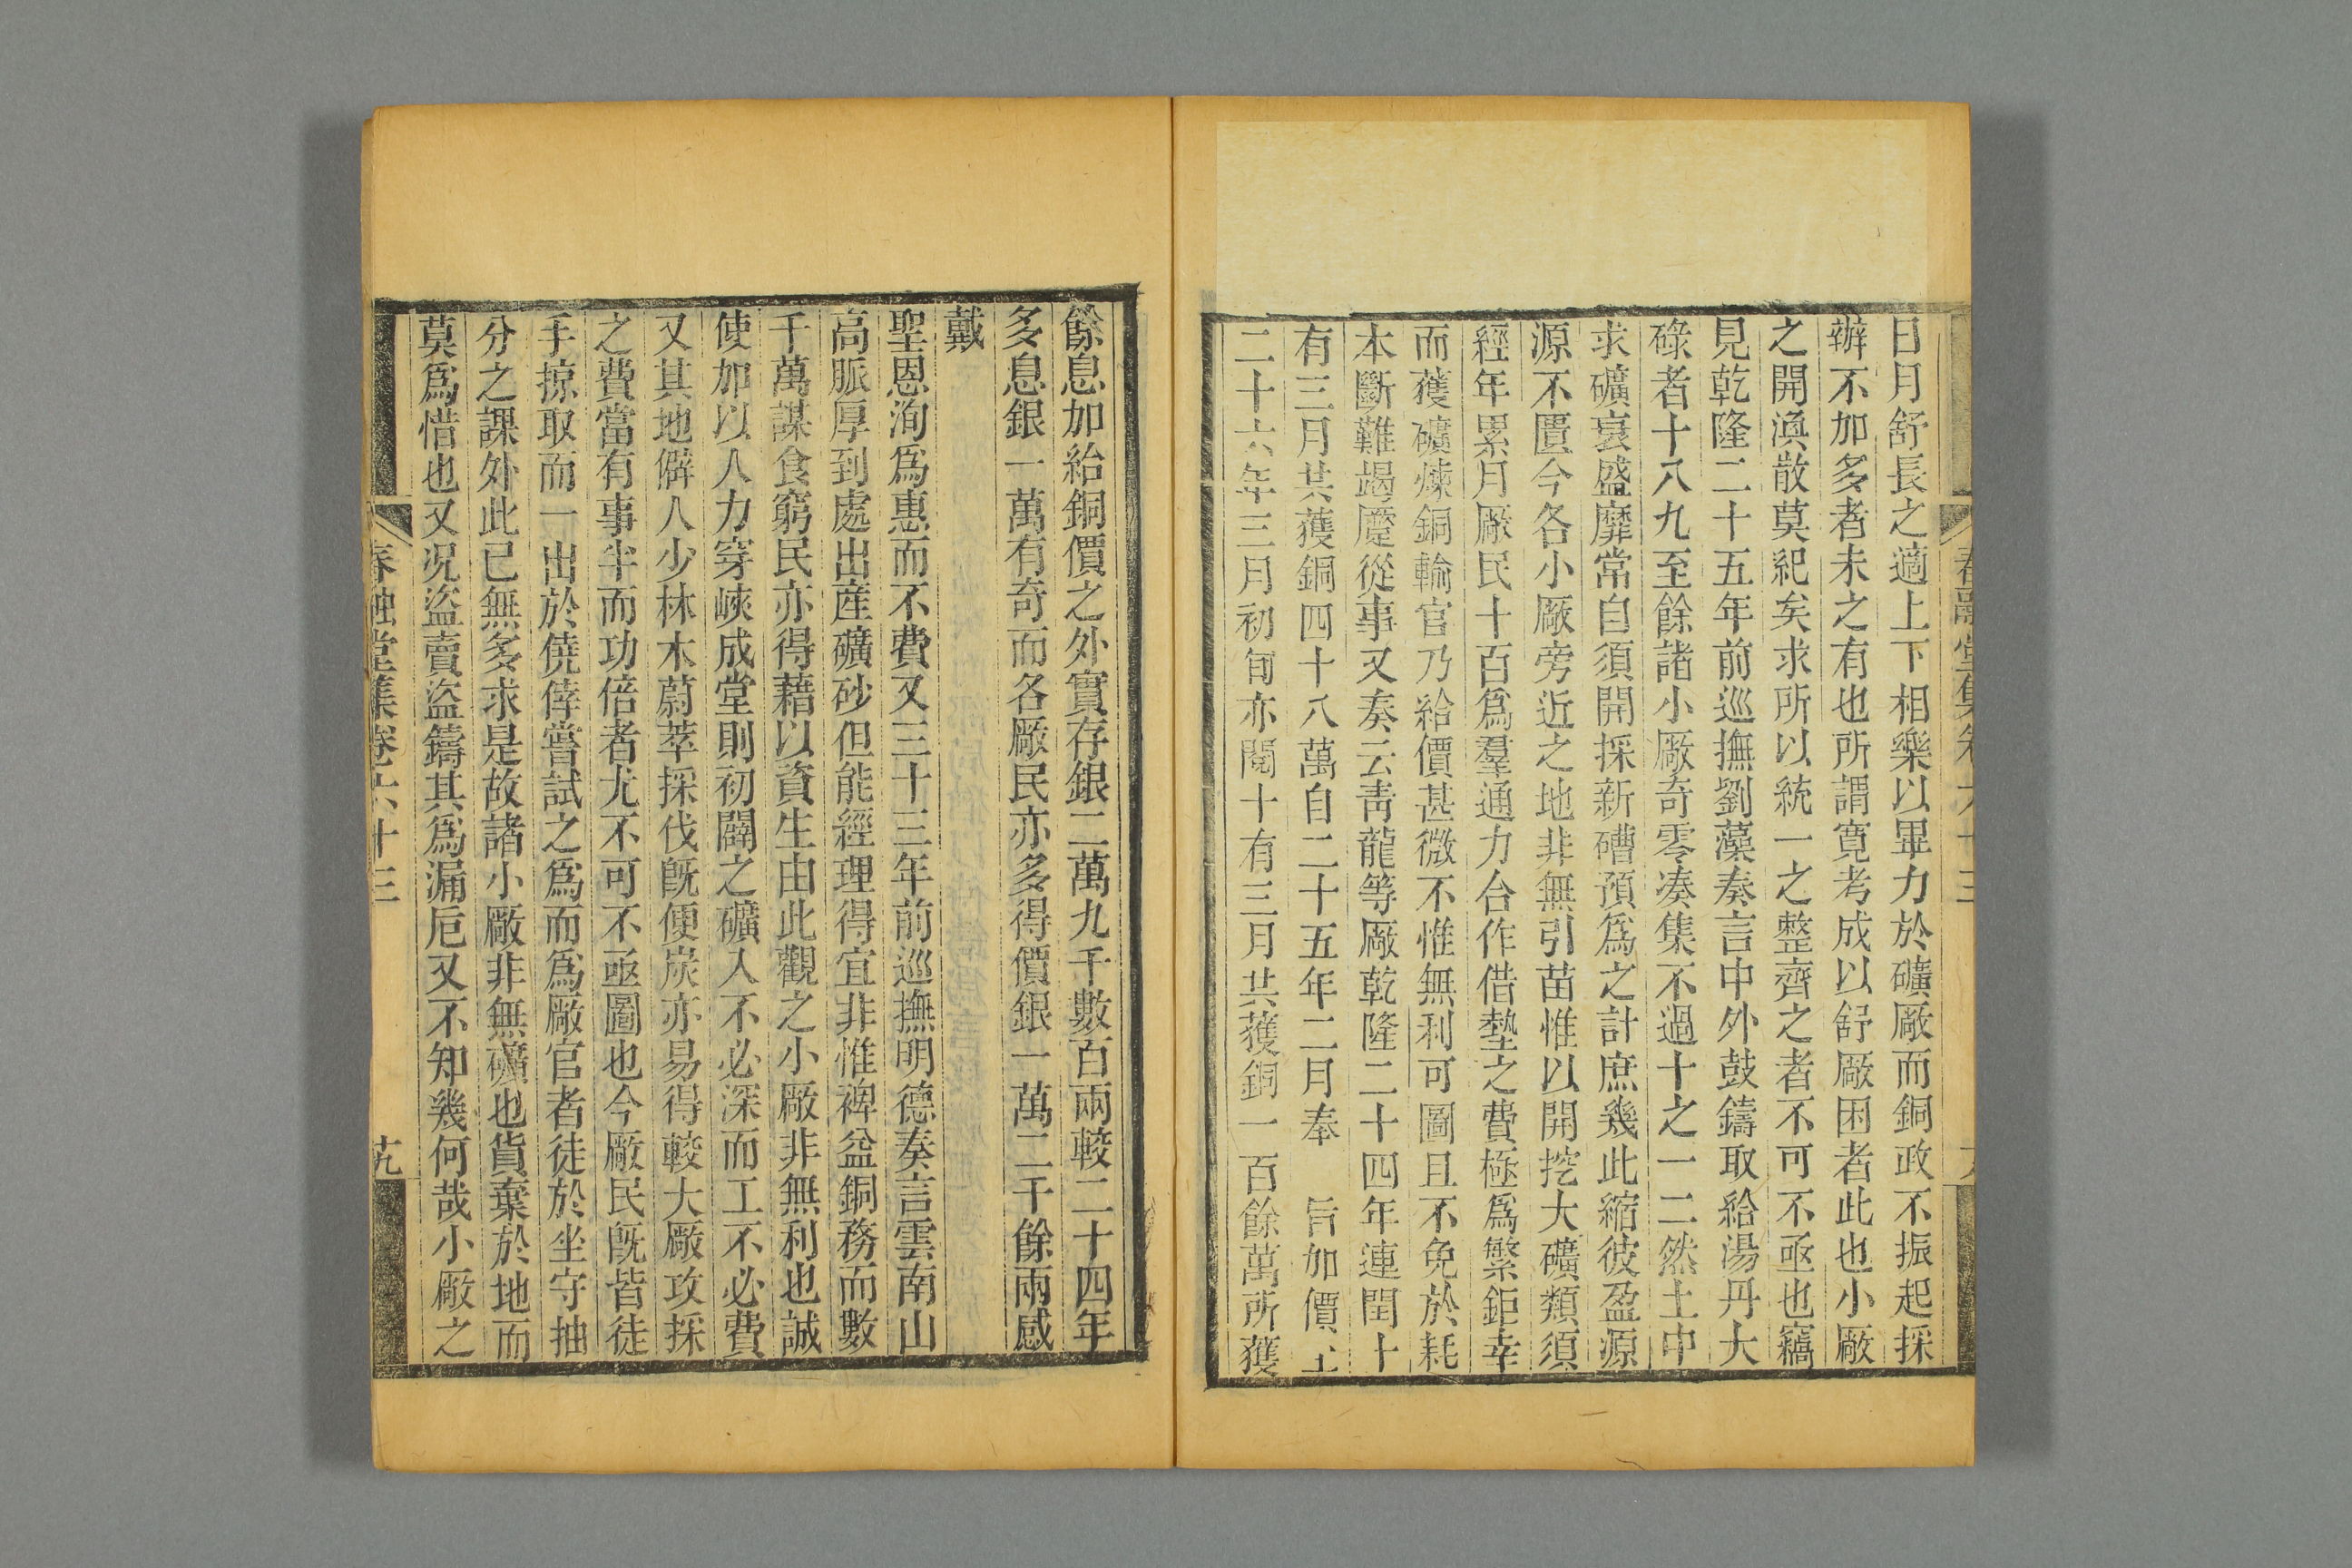 日月舒長之適上下相樂以畢力於礦厰而銅政不振起採
辦不加多者未之有也所謂寛考成以舒厰困者此也小厰
之開渙散莫紀矣求所以統一之整齊之者不可不亟也竊
見乾隆二十五年前巡撫劉藻奏言中外鼓鑄取給湯丹大
碌者十八九至餘諸小厰奇零凑集不過十之一二然土中
求礦衰盛靡常自須開採新𥕢預爲之計庶幾此縮彼盈源
源不匱今各小厰旁近之地非無引苗惟以開挖大礦類須
經年累月厰民十百爲羣通力合作借墊之費極爲繁鉅幸
而獲礦煉銅輸官乃給價甚微不惟無利可圖且不免於耗
本斷難竭蹷從事又奏云青龍等厰乾隆二十四年連閏十
有三月共獲銅四十八萬自二十五年二月奉 旨加價
二十六年三月初旬亦閱十有三月共獲銅一百餘萬所獲
餘息加給銅價之外實存銀二萬九千數百兩較二十四年
多息銀一萬有奇而各厰民亦多得價銀一萬二千餘兩感
戴
聖恩洵爲惠而不費又三十三年前巡撫明德奏言雲南山
高脈厚到處出産礦砂但能經理得宜非惟裨益銅務而數
千萬謀食窮民亦得藉以資生由此觀之小厰非無利也誠
使加以人力穿峽成堂則初闢之礦入不必深而工不必費
又其地僻人少林木蔚萃採伐旣便炭亦易得較大厰攻採
之費當有事半而功倍者尤不可不亟圖也今厰民旣皆徒
手掠取而一出於僥倖嘗試之爲而爲厰官者徒於坐守抽
分之課外此已無多求是故諸小厰非無礦也貨棄於地而
莫爲惜也又况盜賣盜鑄其爲漏卮又不知幾何哉小厰之
春融堂集卷六十三